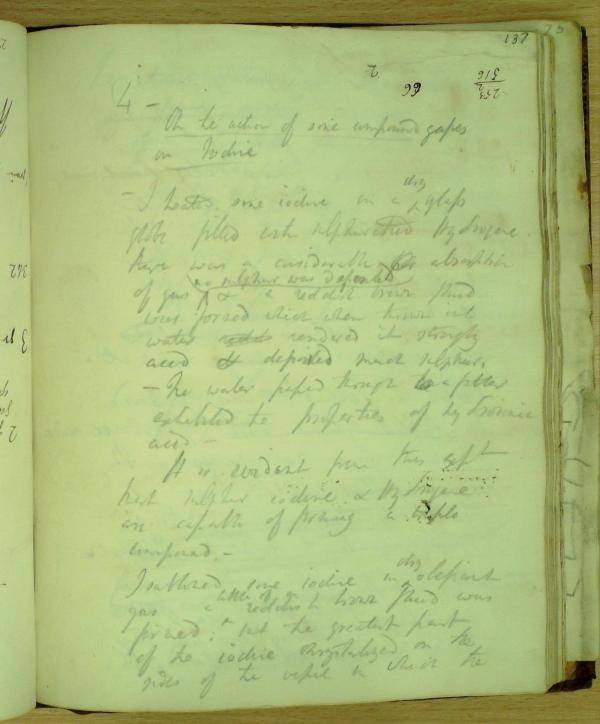 137
2
66
253
2
516
4 -
On the action of some compound gases
on Iodine
- I heated some iodine in a dry glass
globe filled with sulphuretted Hydrogene.
there was a considerable absorption
of gas no sulphur was deposited & a reddish brown fluid
was formed which when thrown into
water rendered it strongly
acid & deposited much sulphur.
- The water passed through a filter
exhibited the properties of hydroionic
acid -
It is evident from this expt
that sulphur iodine & Hydrogene
are capable of forming a triple
compound. -
I sublimed some iodine in dry olefiant
gas a little of a reddish brown fluid was
formed; but the greatest part
of the iodine chrystalized on the
sides of the vessel in which the
342
3
2